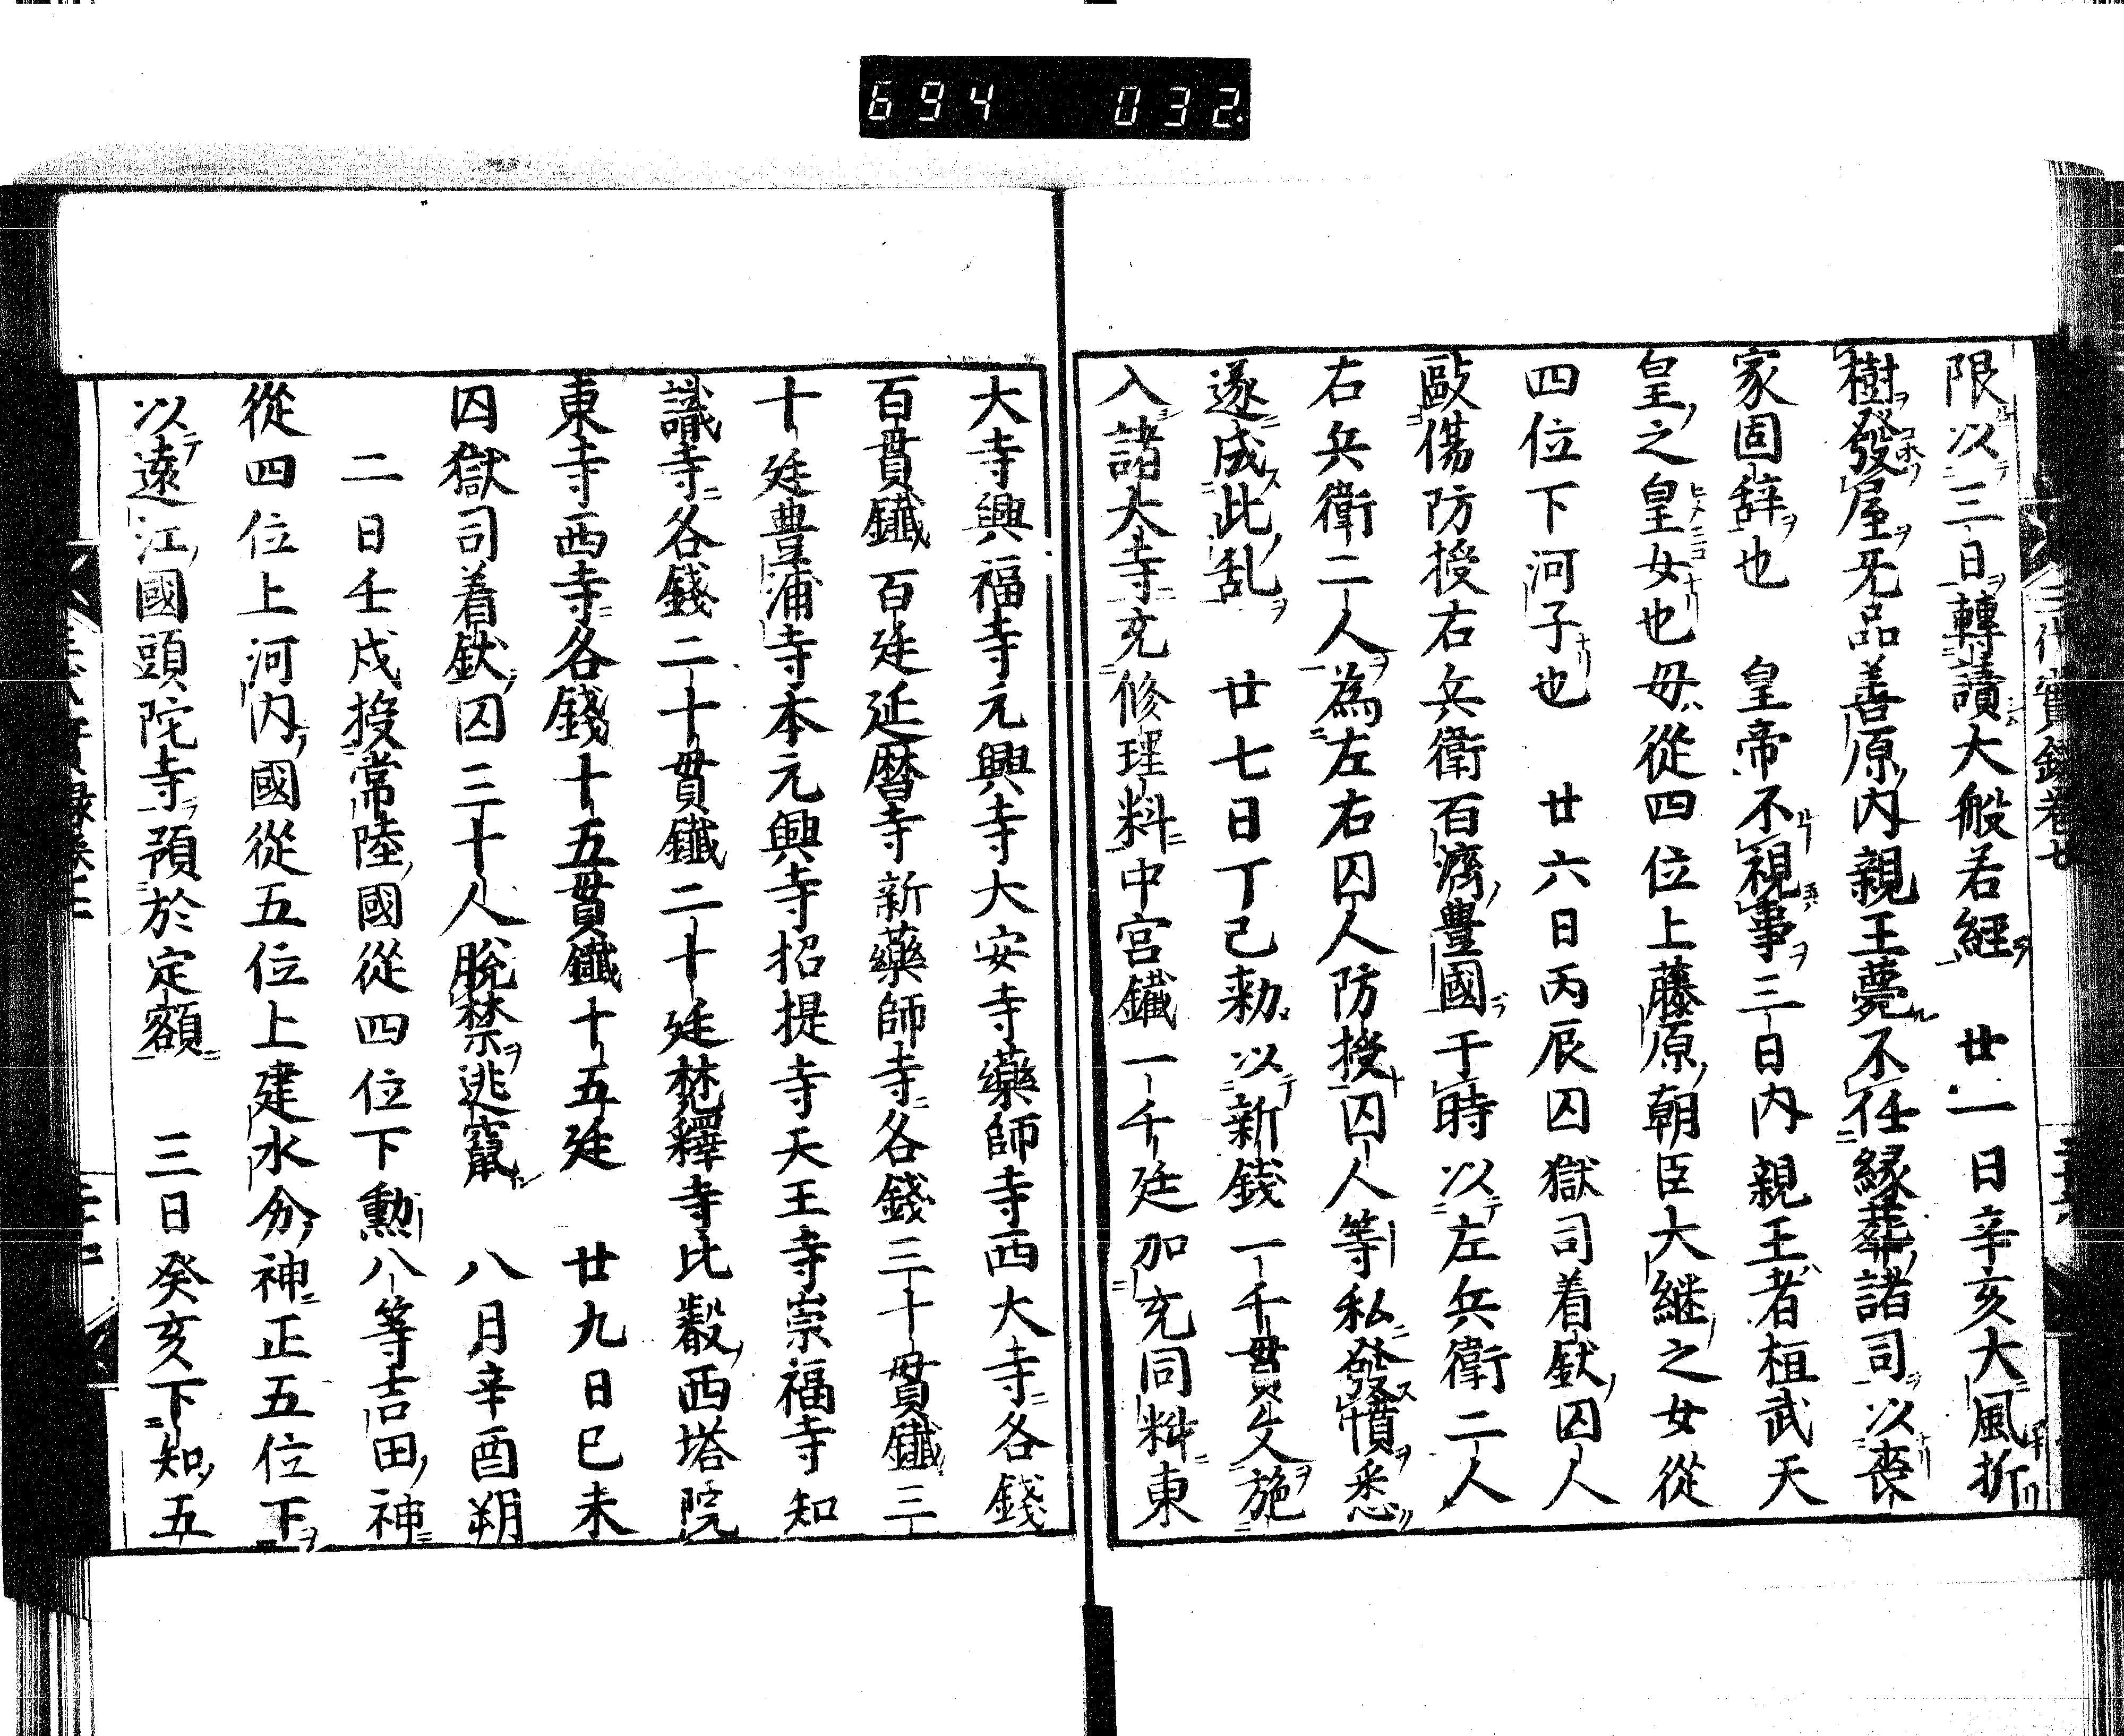 694 032.
限以三日轉讀大般若經　廿一日辛亥大風折
樹發屋无品善原内親王薨不任縁葬諸司以喪
家固辞也　皇帝不視事三日内親王者桓武天
皇之皇女也母從四位上藤原朝臣大継之女從
四位下河子也　廿六日丙辰囚獄司着釱囚人
毆傷防授右兵衛百濟豊國于時以左兵衛二人
右兵衛二人為左右囚人防授囚人等私發憤恚
遂成此乱　廿七日丁己勅以新錢一千貫文施
入諸大寺充修理料中宮鐵一千廷加充同料東
大寺興福寺元興寺大安寺藥師寺西大寺各錢
百貫鐵百廷延暦寺新藥師寺各錢三十貫鐵三
十廷豊浦寺本元興寺招提寺天王寺崇福寺知
識寺各錢二十貫鐵二十廷梵釋寺比叡西塔院
東寺西寺各錢十五貫鐵十五廷　廿九日已未
囚獄司着釱囚三十人脱禁逃竄　八月辛酉朔
二日壬戌授常陸國從四位下勲八等吉田神
從四位上河内國從五位上建水分神正五位下
以遠江國頭陀寺預於定額　三日癸亥下知五